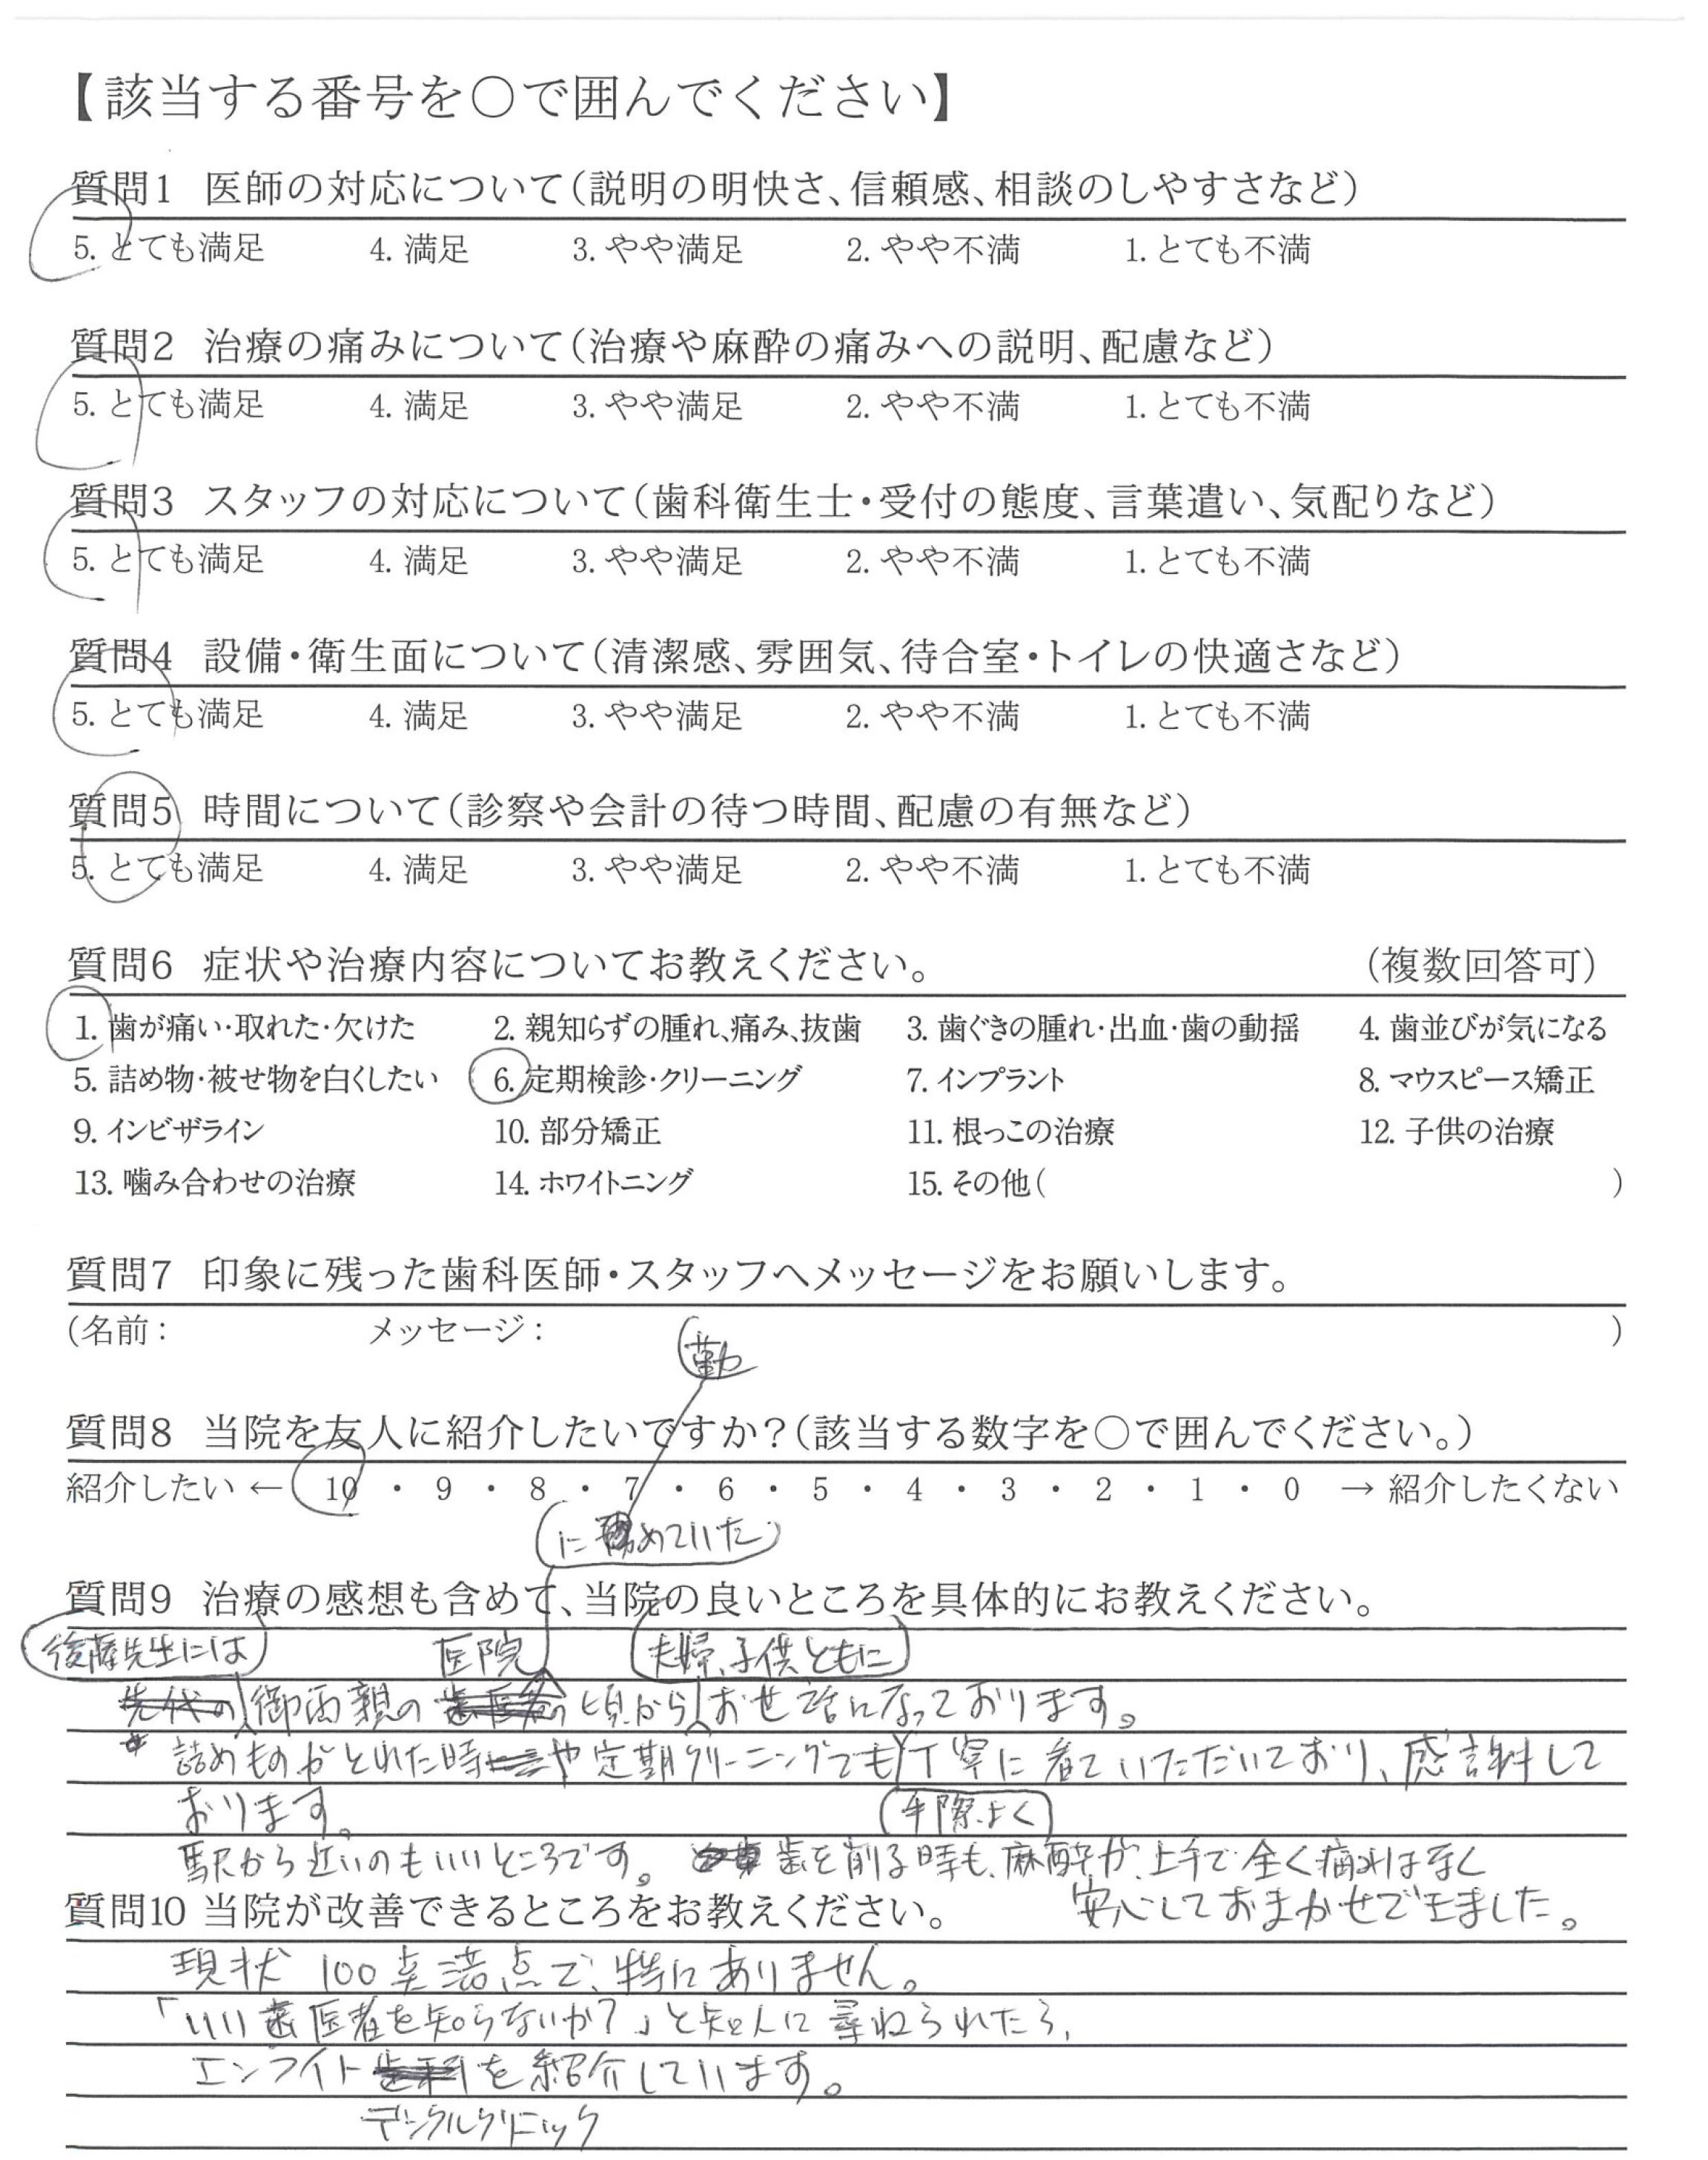 【該当する番号を○で囲んでください】
質問1 医師の対応について(説明の明快さ、信頼感、相談のしやすさなど)
5. とても満足 4. 満足 3. やや満足 2. やや不満 1. とても不満
質問2 治療の痛みについて(治療や麻酔の痛みへの説明、配慮など)
5. とても満足 4. 満足 3. やや満足 2. やや不満 1. とても不満
質問3 スタッフの対応について(歯科衛生士・受付の態度、言葉遣い、気配りなど)
5. とても満足 4. 満足 3. やや満足 2. やや不満 1. とても不満
質問4 設備・衛生面について(清潔感、雰囲気、待合室・トイレの快適さなど)
5. とても満足 4. 満足 3. やや満足 2. やや不満 1. とても不満
質問5 時間について(診察や会計の待つ時間、配慮の有無など)
5. とても満足 4. 満足 3. やや満足 2. やや不満 1. とても不満
質問6 症状や治療内容についてお教えください。 (複数回答可)
1. 歯が痛い・取れた・欠けた 2. 親知らずの腫れ、痛み、抜歯 3. 歯ぐきの腫れ・出血・歯の動揺 4. 歯並びが気になる
5. 詰め物・被せ物を白くしたい 6. 定期検診・クリーニング 7. インプラント 8. マウスピース矯正
9. インビザライン 10. 部分矯正 11. 根っこの治療 12. 子供の治療
13. 噛み合わせの治療 14. ホワイトニング 15. その他( )
質問7 印象に残った歯科医師・スタッフへメッセージをお願いします。
(名前: メッセージ: )
勤
質問8 当院を友人に紹介したいですか?(該当する数字を○で囲んでください。)
紹介したい ← 10 ・ 9 ・ 8 ・ 7 ・ 6 ・ 5 ・ 4 ・ 3 ・ 2 ・ 1 ・ 0 → 紹介したくない
に めていた
質問9 治療の感想も含めて、当院の良いところを具体的にお教えください。
後藤先生には 医院 夫婦、子供ともに
御両親の 頃からお世話になっております。
詰めものがとれた時や定期クリーニングでも丁寧に看ていただいており、感謝して
おります。 手際よく
駅から近いのもいいところです。 歯を削る時も、麻酔が上手で全く痛みはなく
安心しておまかせできました。
質問10 当院が改善できるところをお教えください。
現状 100点満点で、特にありません。
「いい歯医者を知らないか?」と知人に尋ねられたら、
エンライトを紹介しています。
デンタルクリニック